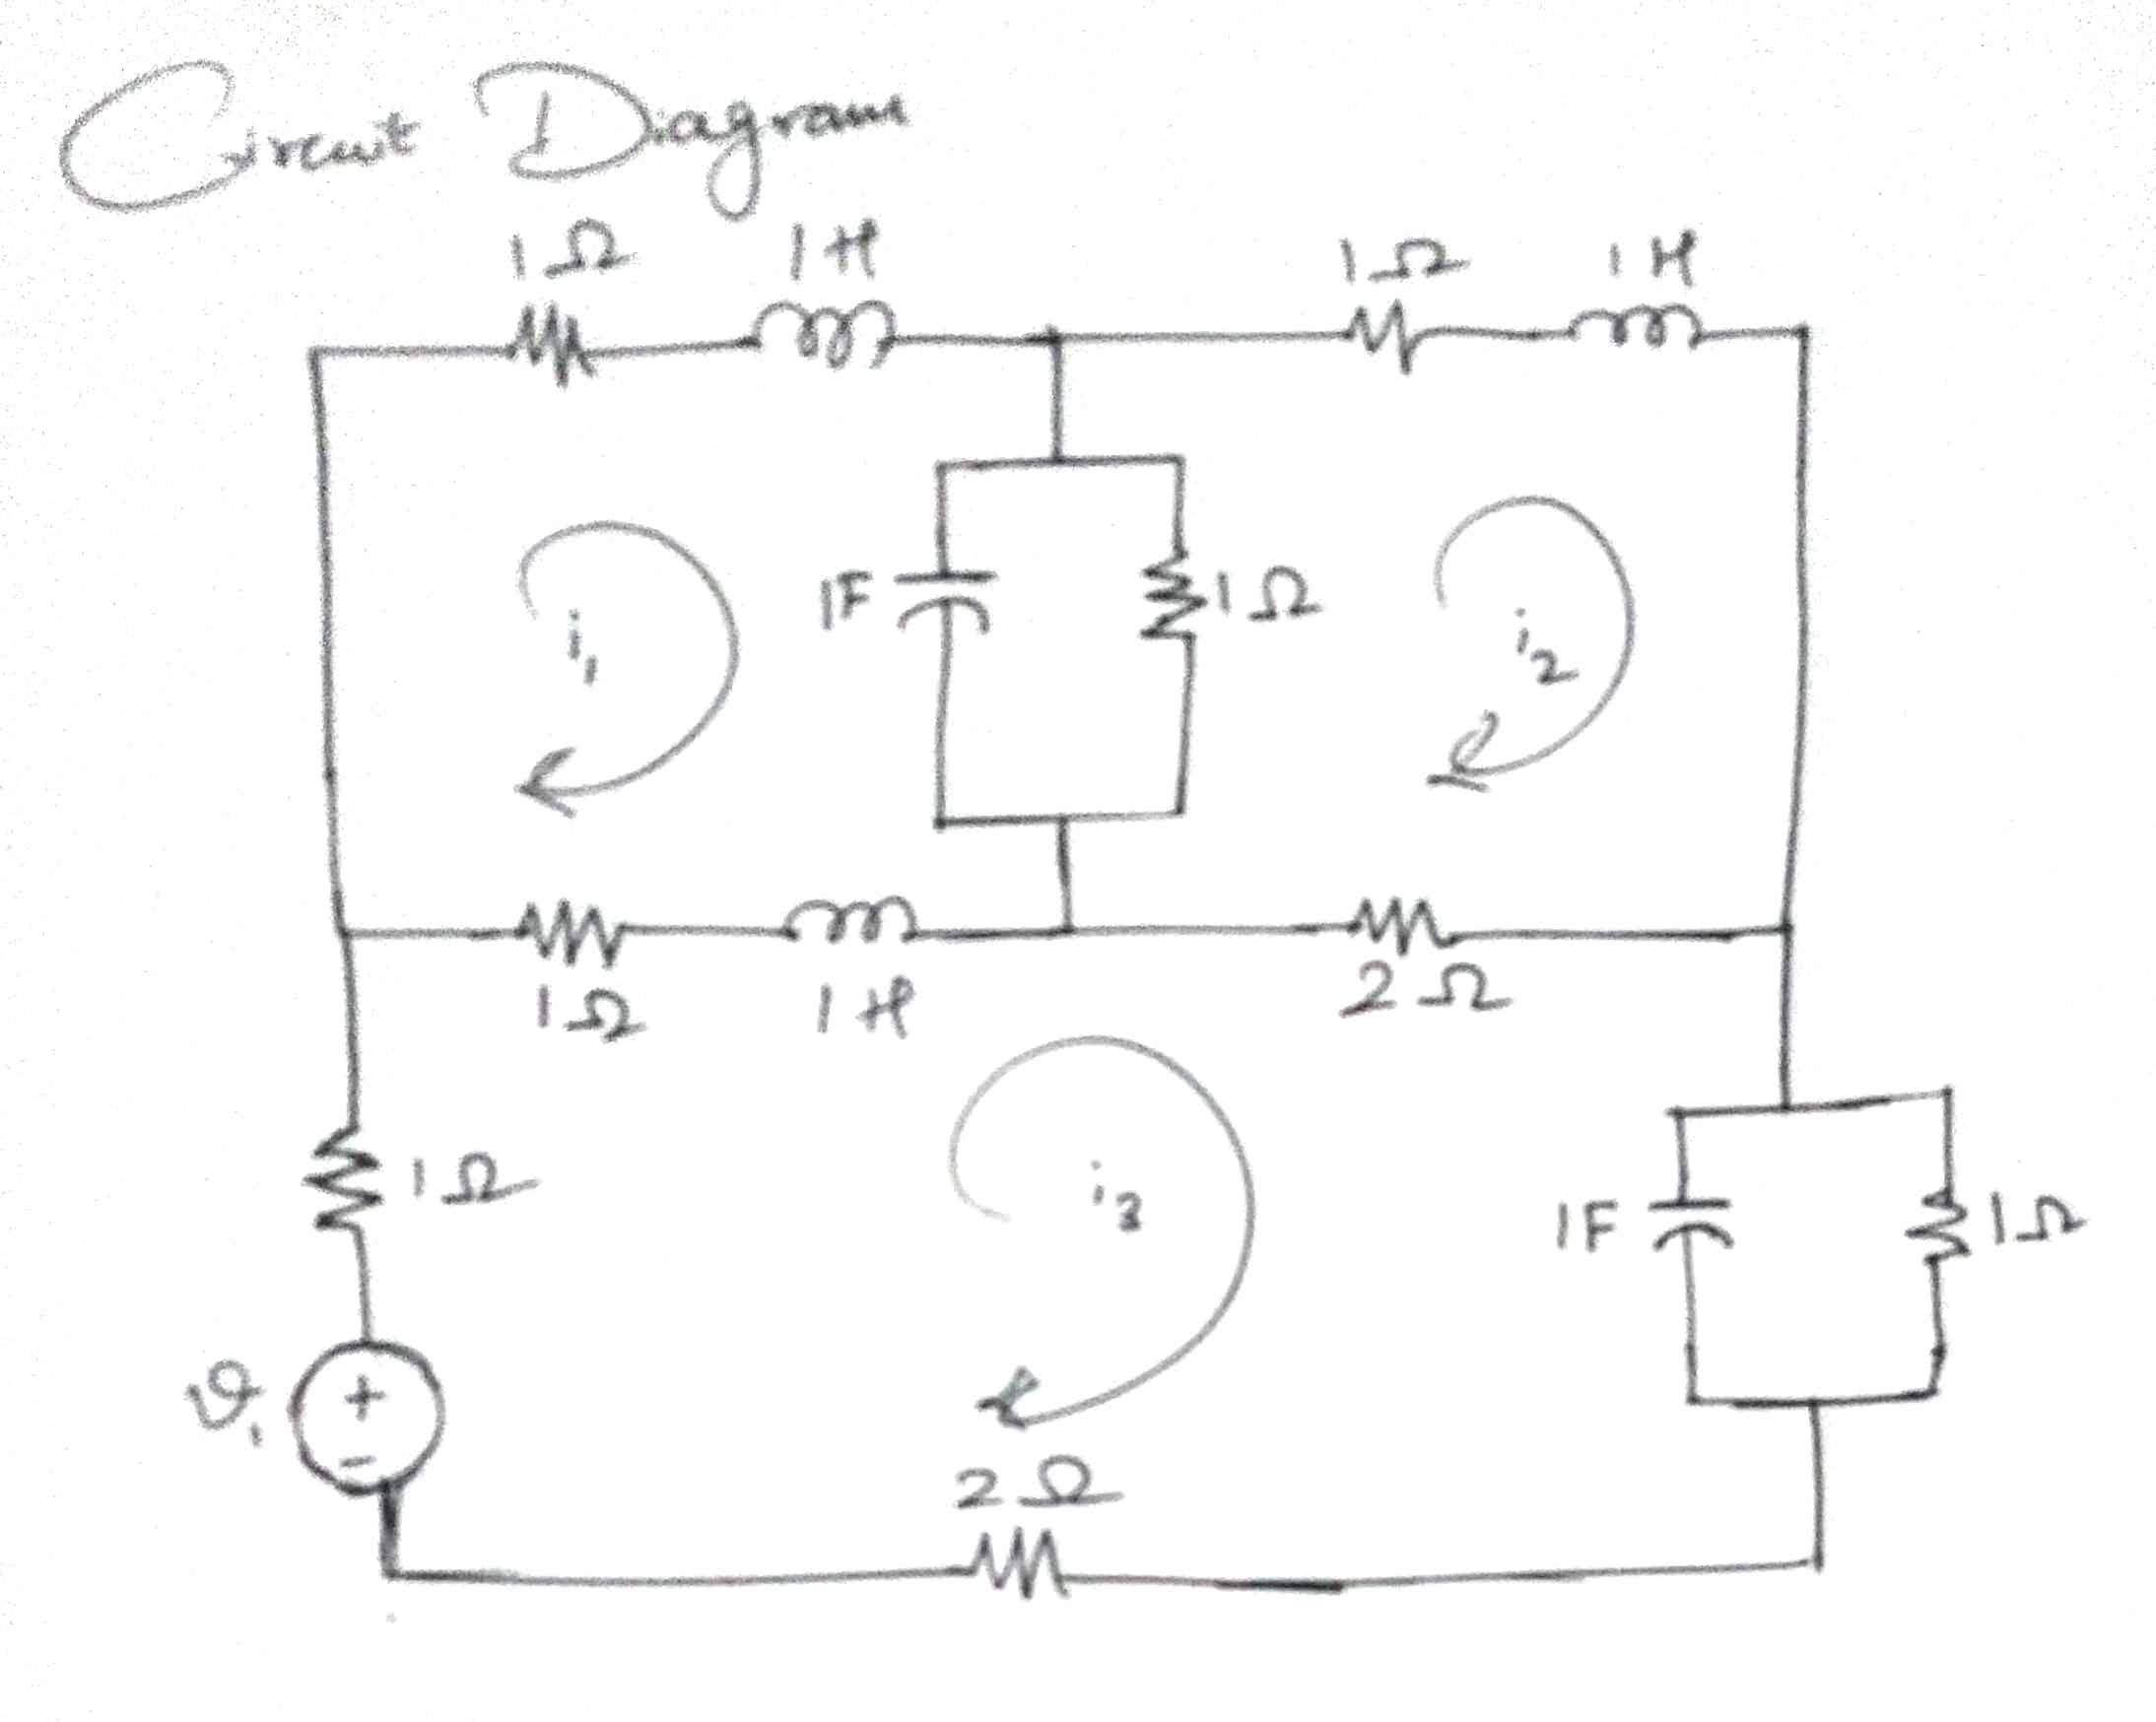 Circuit Diagram
1Ω 1H 1Ω 1H
1F 1Ω
i₁ i₂
1Ω 1H 2Ω
1Ω i₃ 1F 1Ω
v₁ + −
2Ω